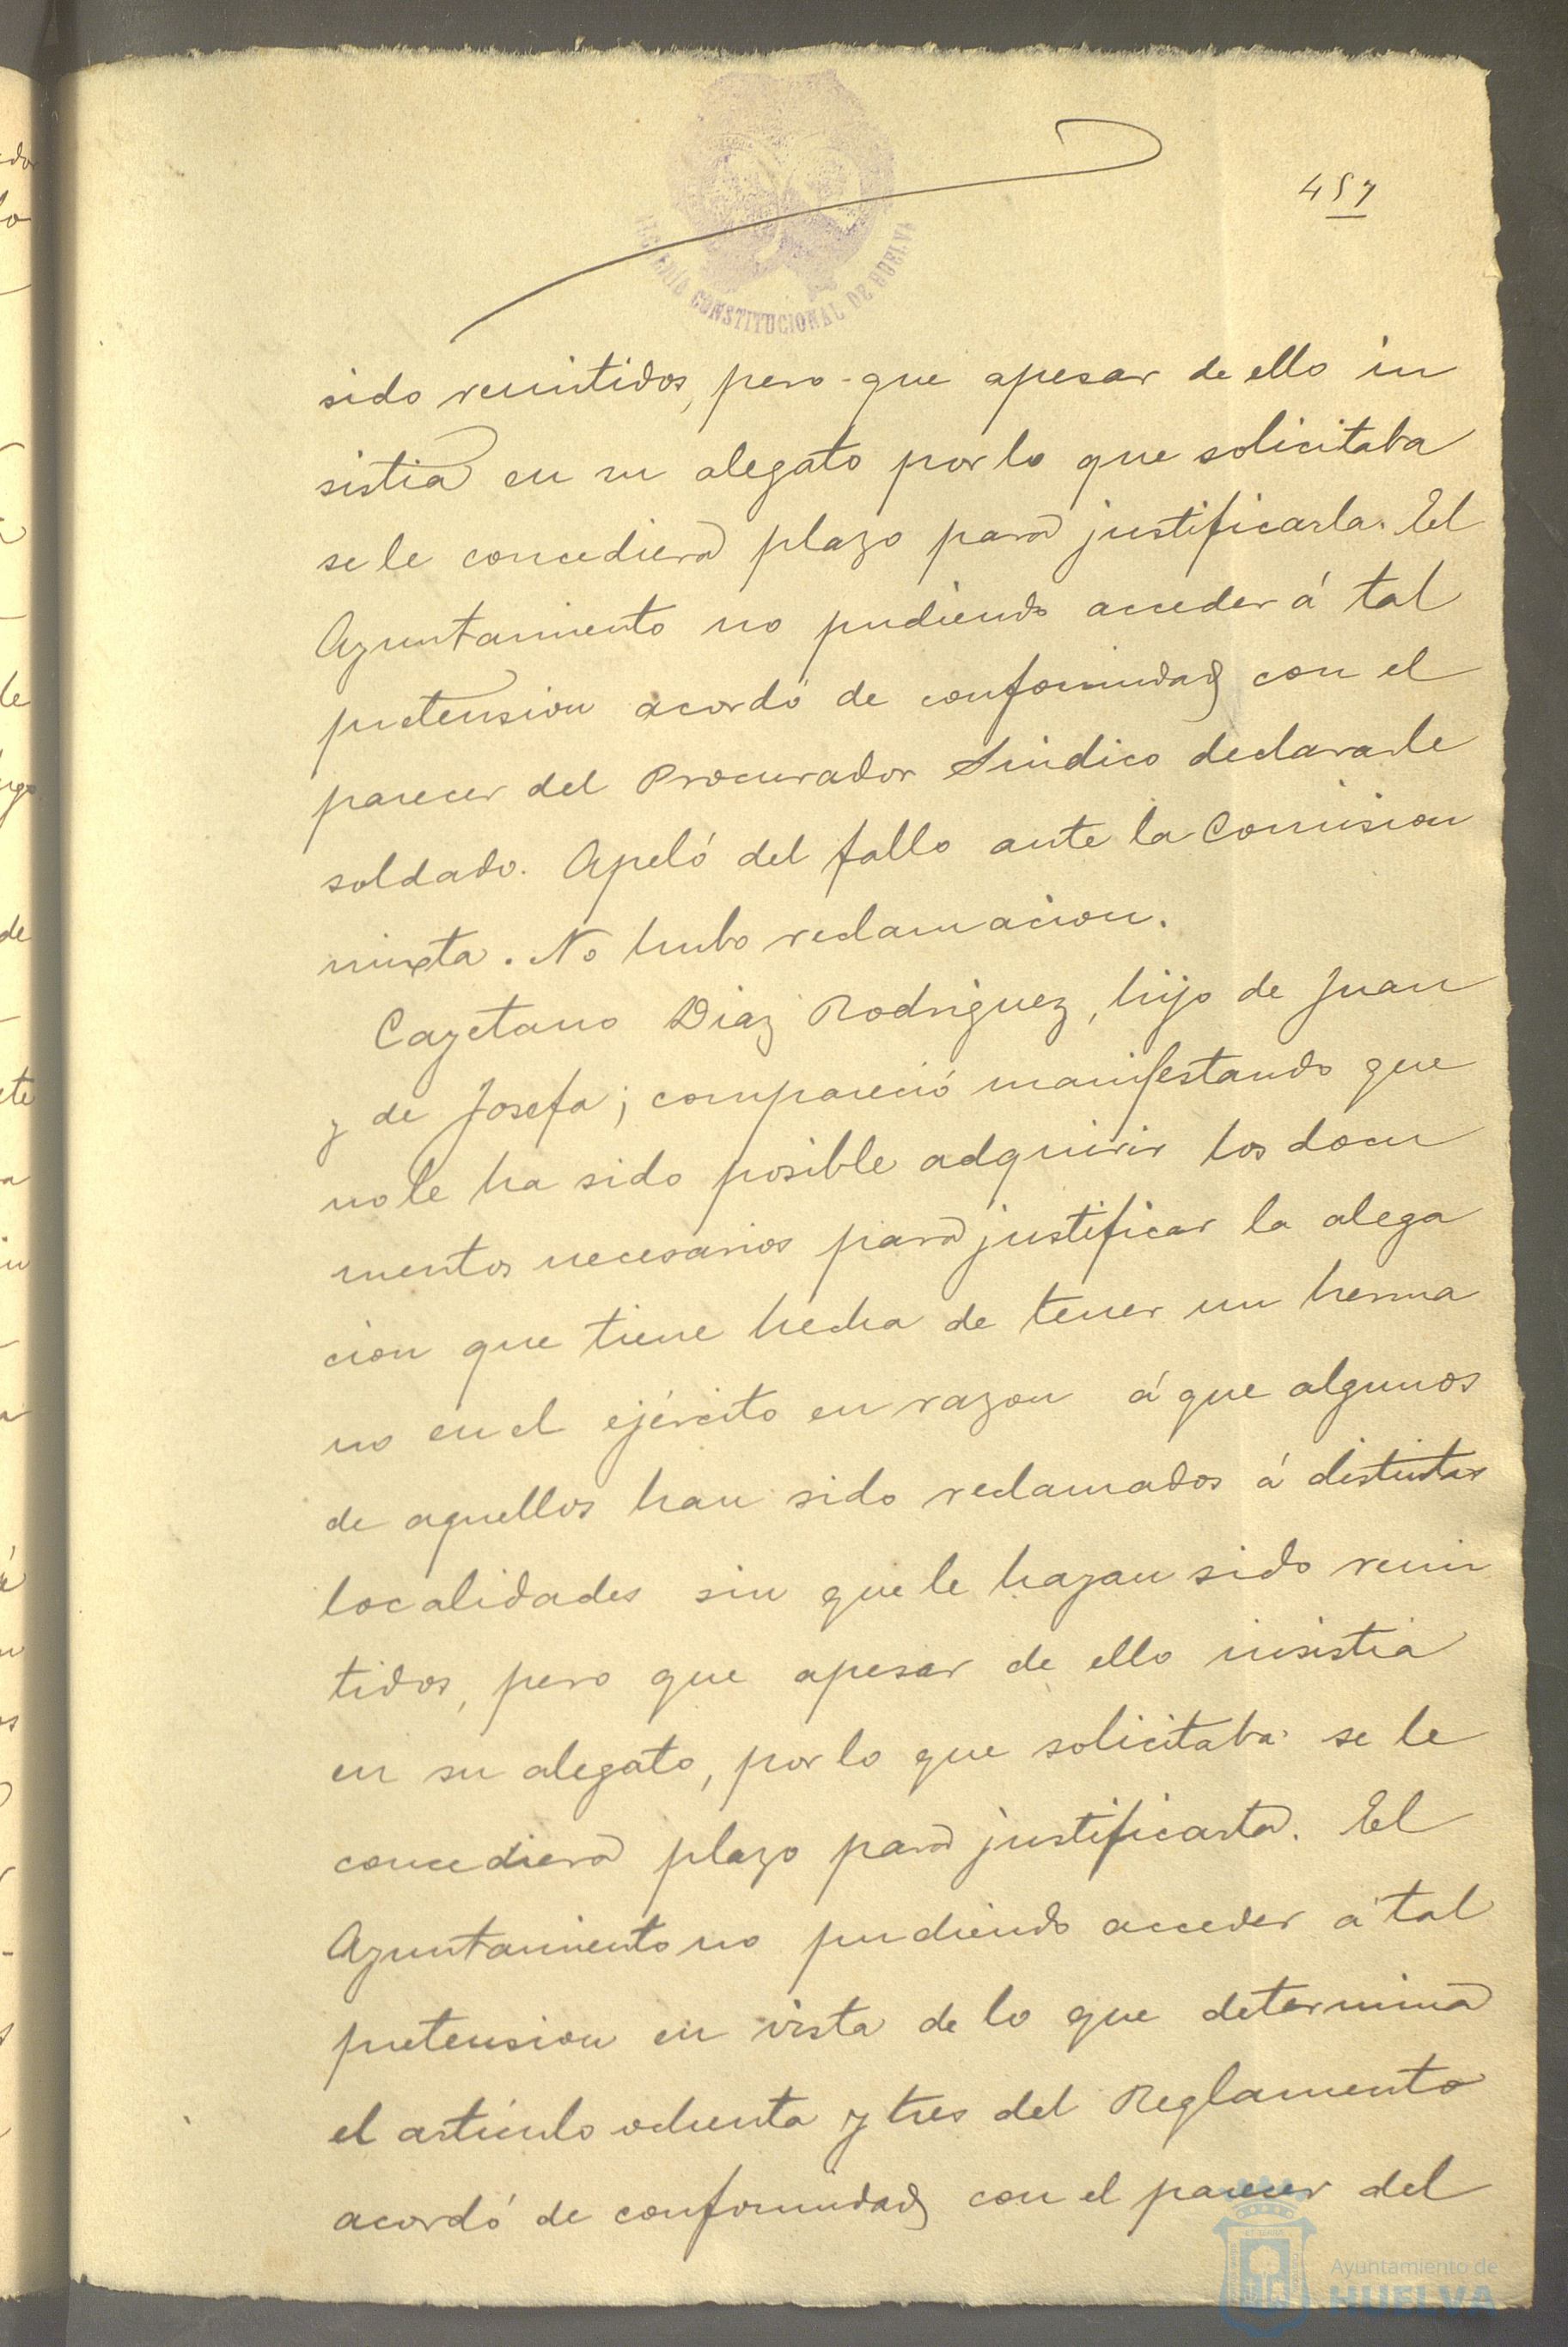 457
CONSTITUCIONAL DE HUELVA
sido remitidos, pero que apesar de ello in
sistia en su alegato por lo que solicitaba
se le concediera plazo para justificarla. El
Ayuntamiento no pudiendo acceder á tal
pretension acordó de conformidad con el
parecer del Procurador Sindico declararle
soldado. Apeló del fallo ante la Comision
mixta. No hubo reclamacion.
Cayetano Diaz Rodriguez, hijo de Juan
y de Josefa; compareció manifestando que
no le ha sido posible adquirir los docu
mentos necesarios para justificar la alega
cion que tiene hecha de tener un herma
no en el ejército en razon á que algunos
de aquellos han sido reclamados á distintas
localidades sin que le hayan sido remi
tidos, pero que apesar de ello insistia
en su alegato, por lo que solicitaba se le
concediera plazo para justificarla. El
Ayuntamiento no pudiendo acceder á tal
pretension en vista de lo que determina
el articulo ochenta y tres del Reglamento
acordó de conformidad con el parecer del
Ayuntamiento de
HUELVA